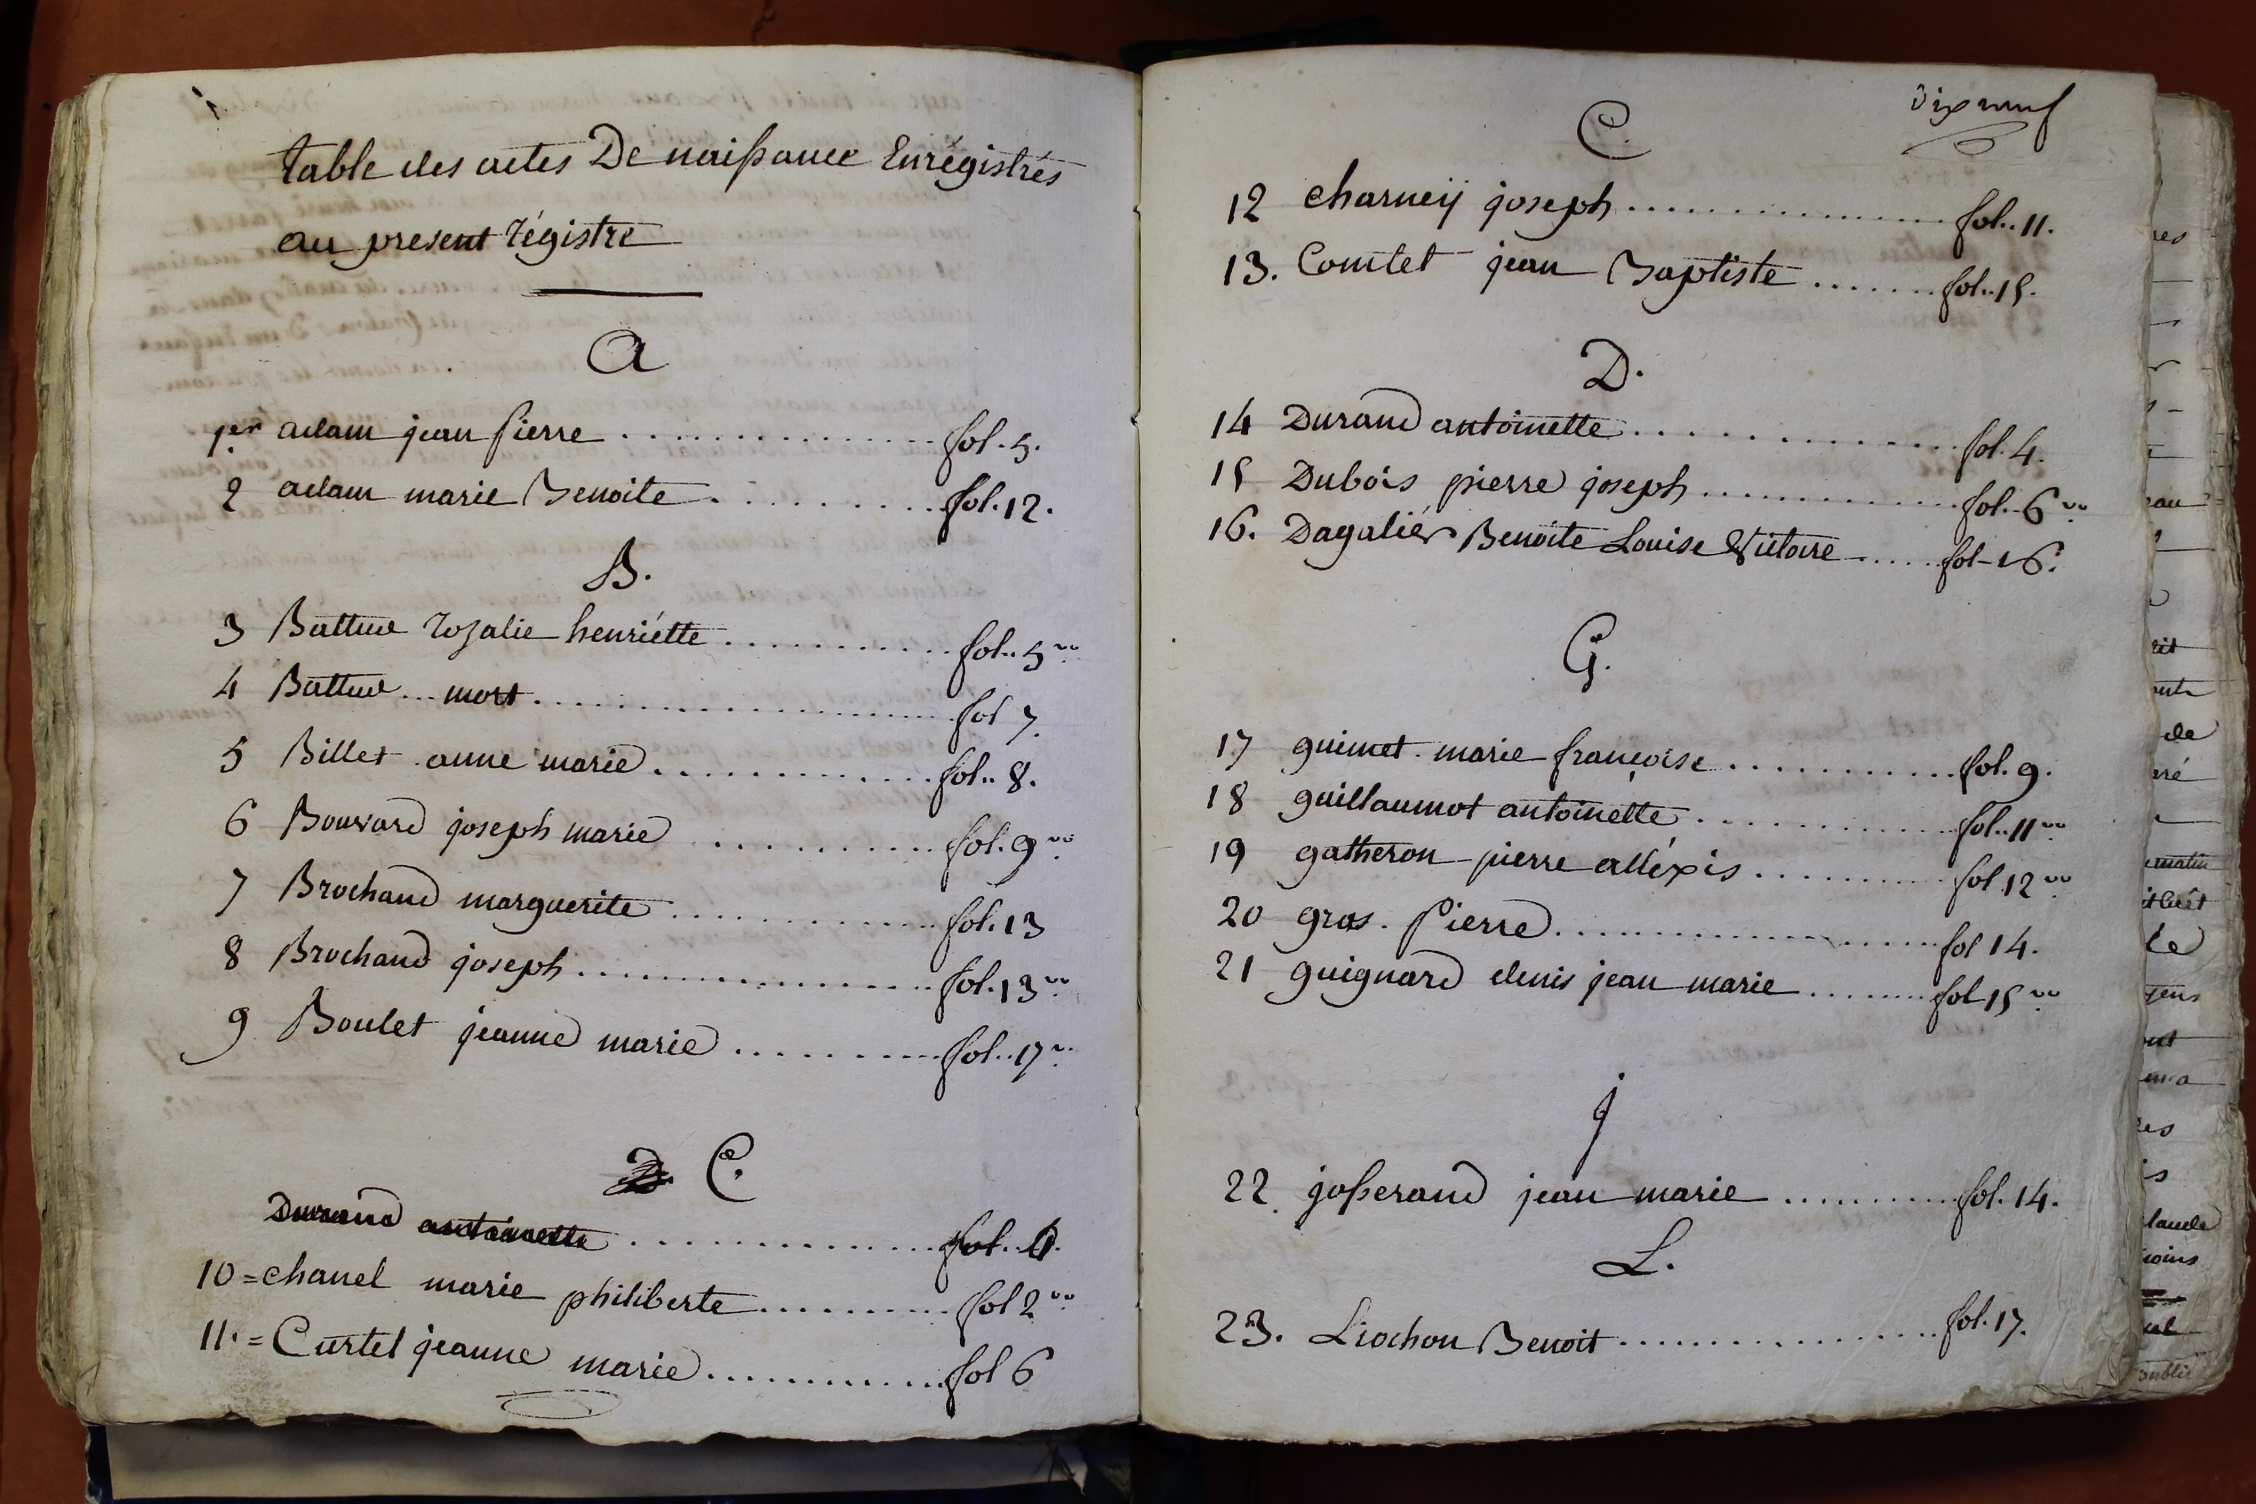 table des actes De naissance Enrégistrés
au present régistre
A
1er adam jean pierre .............. fol. 5.
2 adam marie Benoite .......... fol. 12.
B.
3 Battue rozalie henriétte ........... fol.. 5 vo.
4 Battue ... mort ...................... fol 7.
5 Billet anne marie .............. fol.. 8.
6 Bouvard joseph marie ........... fol. 9 vo.
7 Brochand marguerite .............. fol. 13
8 Brochand joseph .................. fol. 13 vo.
9 Boulet jeanne marie .......... fol.. 17 vo.
D. C.
Durand antoinette .............. fol. 4.
10 = chanel marie philiberte .......... fol 2 vo.
11. = Curtel jeanne marie ............ fol 6
Dix neuf
C.
12 charneÿ joseph ................ fol.. 11.
13. Comtet jean Baptiste ....... fol.. 15.
D.
14 Durand antoinette .............. fol. 4.
15 Dubois pierre joseph ............ fol.. 6 vo.
16. Dagaliér Benoite Louise Victoire ..... fol - 16.
G.
17 guimet marie françoise ........... fol. 9.
18 guillaumot antoinette ............ fol.. 11 vo
19 gatheron pierre alléxis .......... fol 12 vo
20 gros. Pierre .................. fol 14.
21 guignard denis jean marie ........ fol 15 vo.
j
22 josserand jean marie .......... fol. 14.
L.
23. Liochon Benoit ................ fol. 17.